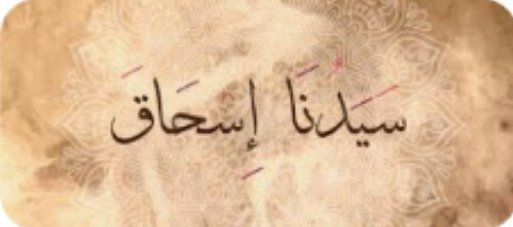 سَيِّدُنَا إِسْحَاقَ